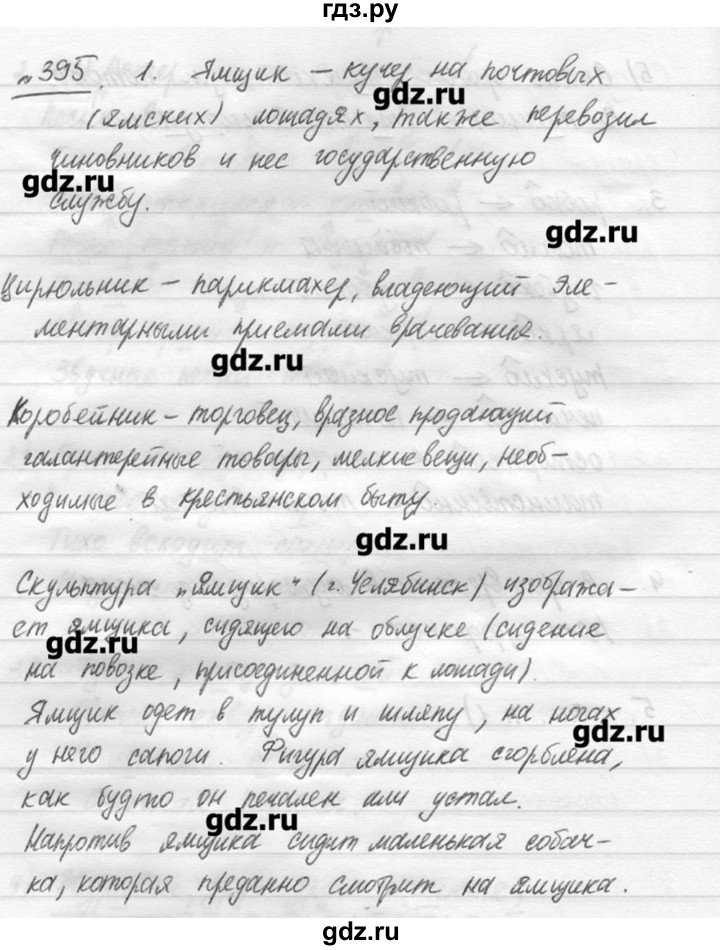 гдз.ру
№395. 1. Ямщик – кучер на почтовых
gdz.ru
(ямских) лошадях, также перевозил
чиновников и нес государственную
gdz.ru
службу.
gdz.ru
Цирюльник – парикмахер, владеющий эле-
ментарными приемами врачевания.
gdz.ru
Коробейник – торговец, вразнос продающий
галантерейные товары, мелкие вещи, необ-
ходимые в крестьянском быту.
gdz.ru
Скульптура „Ямщик“ (г. Челябинск) изобража-
ет ямщика, сидящего на облучке (сидение
gdz.ru
на повозке, присоединенной к лошади).
Ямщик одет в тулуп и шляпу, на ногах
gdz.ru
у него сапоги. Фигура ямщика сгорблена,
как будто он печален или устал.
gdz.ru
Напротив ямщика сидит маленькая собач-
ка, которая преданно смотрит на ямщика.
gdz.ru